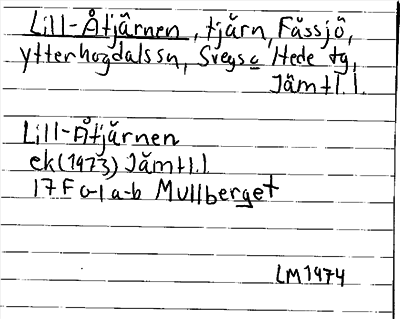 Lill-Åtjärnen, tjärn, Fåssjö,
Ytterhogdalssn, Svegs o Hede tg,
Jämtl.l.
Lill-Åtjärnen
ek(1973) Jämtl.l.
17F 0-1 a-b Mullberget
LM1974